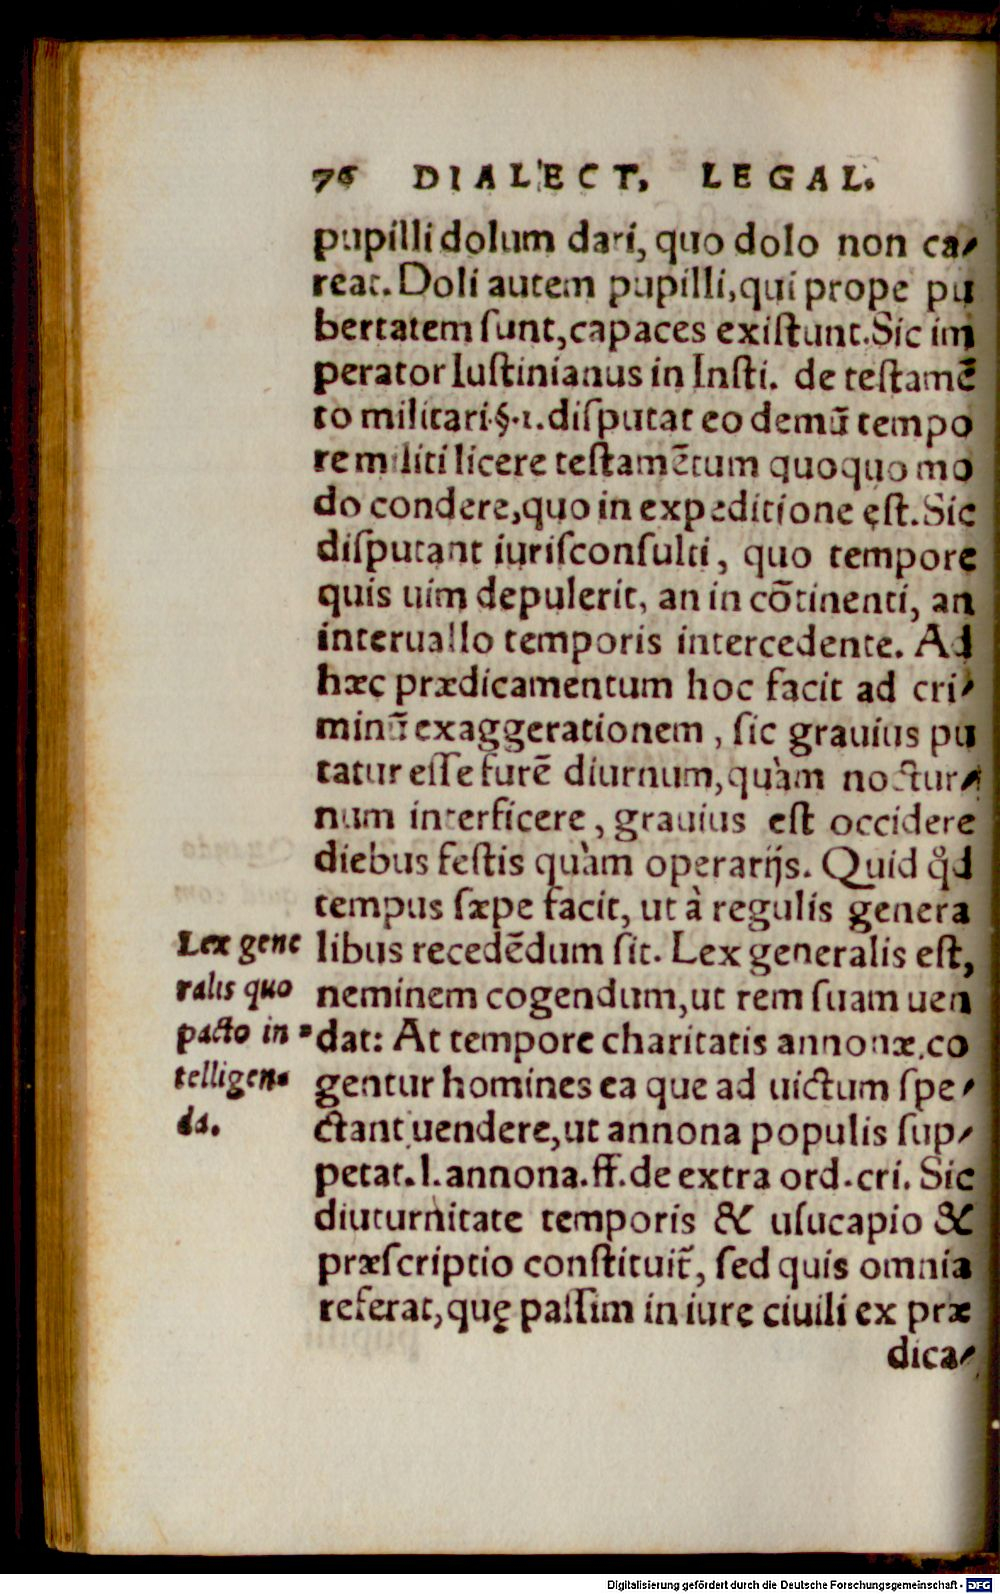 76 DIALECT. LEGAL.
pupilli dolum dari, quo dolo non ca-
reat. Doli autem pupilli, qui prope pu
bertatem sunt, capaces existunt. Sic im
perator Iustinianus in Insti. de testamē
to militari. §. 1. disputat eo demū tempo
re militi licere testamētum quoquo mo
do condere, quo in expeditione est. Sic
disputant iurisconsulti, quo tempore
quis uim depulerit, an in cōtinenti, an
interuallo temporis intercedente. Ad
hæc prædicamentum hoc facit ad cri-
minū exaggerationem, sic grauius pu
tatur esse furē diurnum, quàm noctur-
num interficere, grauius est occidere
diebus festis quàm operarijs. Quid qd
tempus sæpe facit, ut à regulis genera
Lex gene
libus recedēdum sit. Lex generalis est,
ralis quo
neminem cogendum, ut rem suam uen
pacto in-
dat: At tempore charitatis annonæ, co
telligen-
gentur homines ea que ad uictum spe-
da.
ctant uendere, ut annona populis sup-
petat. l. annona. ff. de extra ord. cri. Sic
diuturnitate temporis & usucapio &
præscriptio constituit̃, sed quis omnia
referat, quę passim in iure ciuili ex præ
dica-
Digitalisierung gefördert durch die Deutsche Forschungsgemeinschaft - DFG